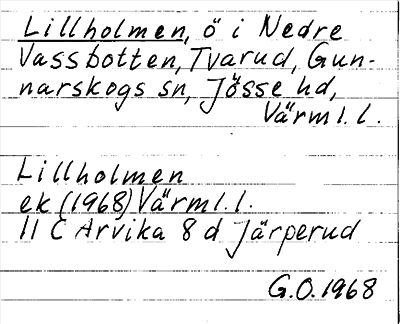 Lillholmen, ö i Nedre
Vassbotten, Tvarud, Gun-
narskogs sn, Jösse hd,
Värml. l.
Lillholmen
ek (1968) Värml. l.
11 C Arvika 8 d Järperud
G.O. 1968